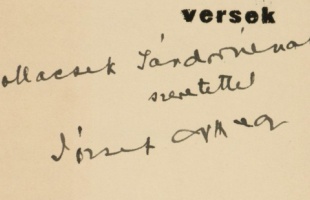 versek
ollacsek Sándornénak
szeretettel
József Attila